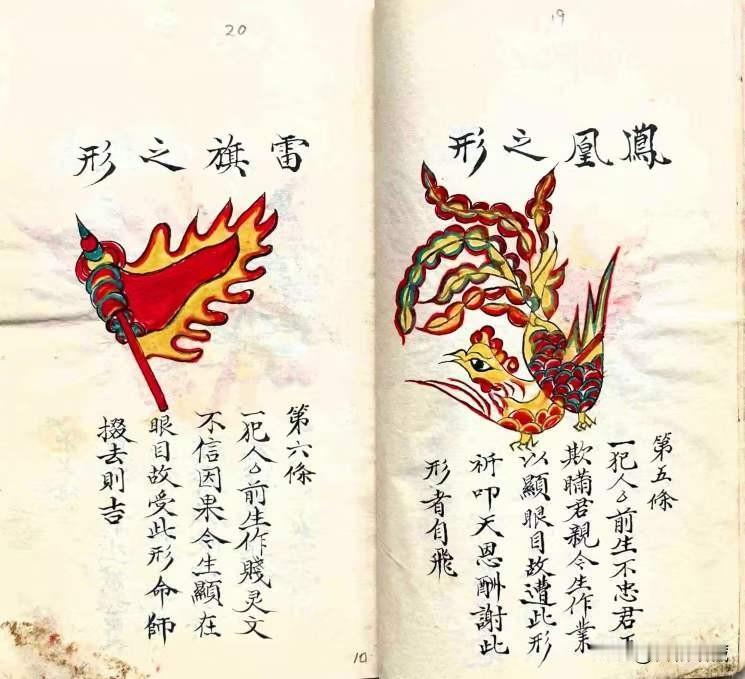 19
鳳凰之形
第五條
一犯人厶前生不忠君
欺瞞君親令生作業
以顯眼目故遭此形
祈叩天恩酬謝此
形者自飛
20
雷旗之形
第六條
一犯人厶前生作賤灵文
不信因果令生顯在
眼目故受此形命師
掇去則吉
10